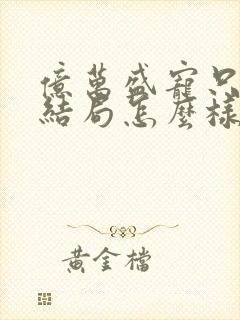 億萬盛寵只
結局怎麼樣
黃金檔